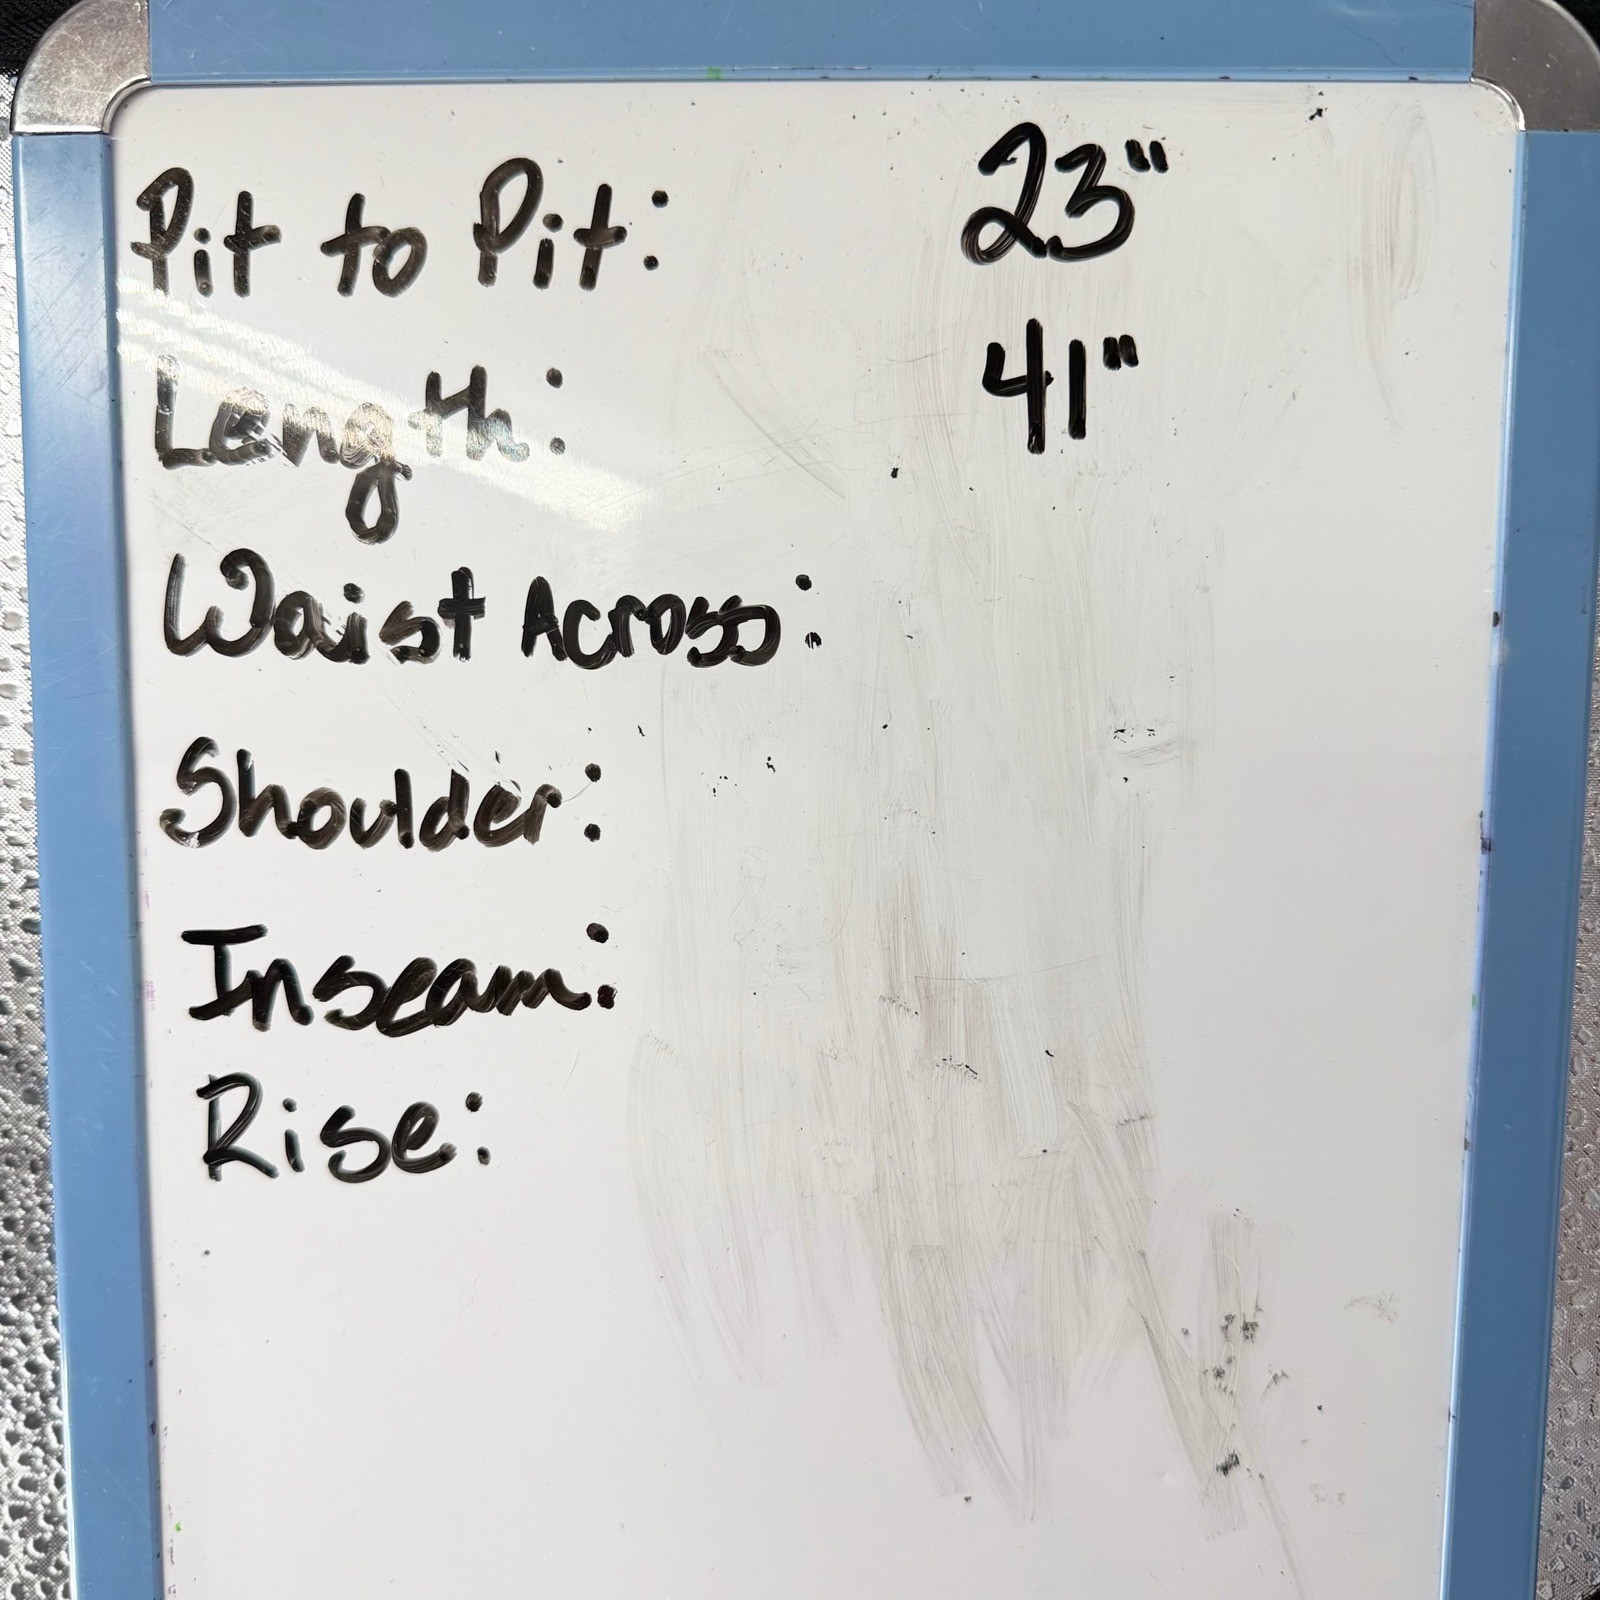 Pit to Pit: 23"
Length: 41"
Waist Across:
Shoulder:
Inseam:
Rise: